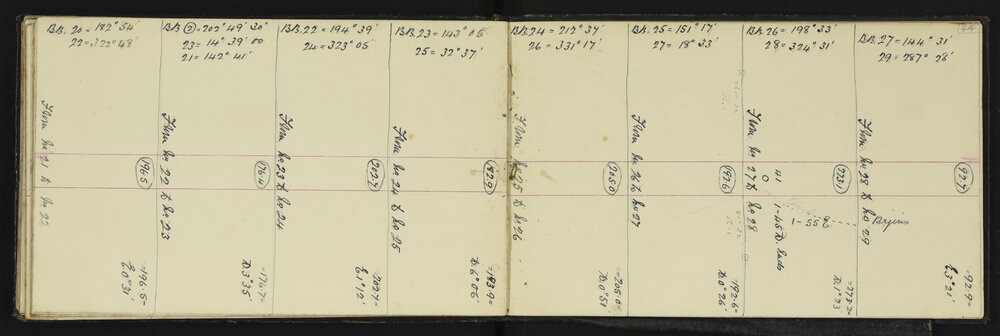 BK. 20 = 182° 54'
22 = 322° 48'
From No 21 to No 22
1965
= 196·5 =
E 0° 31'
BK ② = 202° 49' 30"
23 = 14° 39' 00
21 = 142° 41'
From No 22 to No 23
1764
= 176·7 =
D 3° 35'
BK. 22 = 194° 39'
24 = 323° 05'
From No 23 to No 24
2027
= 202·7 =
E 1° 12'
BK. 23 = 143° 15
25 = 32° 37'
From No 24 to No 25
1829
= 183·9 =
D. 6° 06'
BK 24 = 212° 37'
26 = 331° 17'
From No 25 to No 26
2050
= 205·0 =
D. 0° 51'
BK. 25 = 151° 17'
27 = 18° 33'
From No 26 to No 27
1926
= 192·6 =
D 0° 26'
BK. 26 = 198° 33'
28 = 324° 31'
From No 27 to No 28
41
0
1-45 D. Ends
1-55 E
2731
= 273·2 =
D. 1° 23
44
BK. 27 = 144° 31'
29 = 287° 28'
From No 28 to No 29
Begins
927
= 92·9 =
E 3° 21'